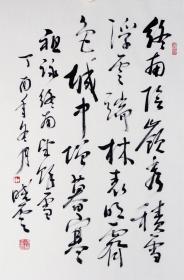 终南阴岭秀积雪
浮云端林表明霁
色城中增暮寒
祖咏终南望馀雪
丁酉年冬月晓云